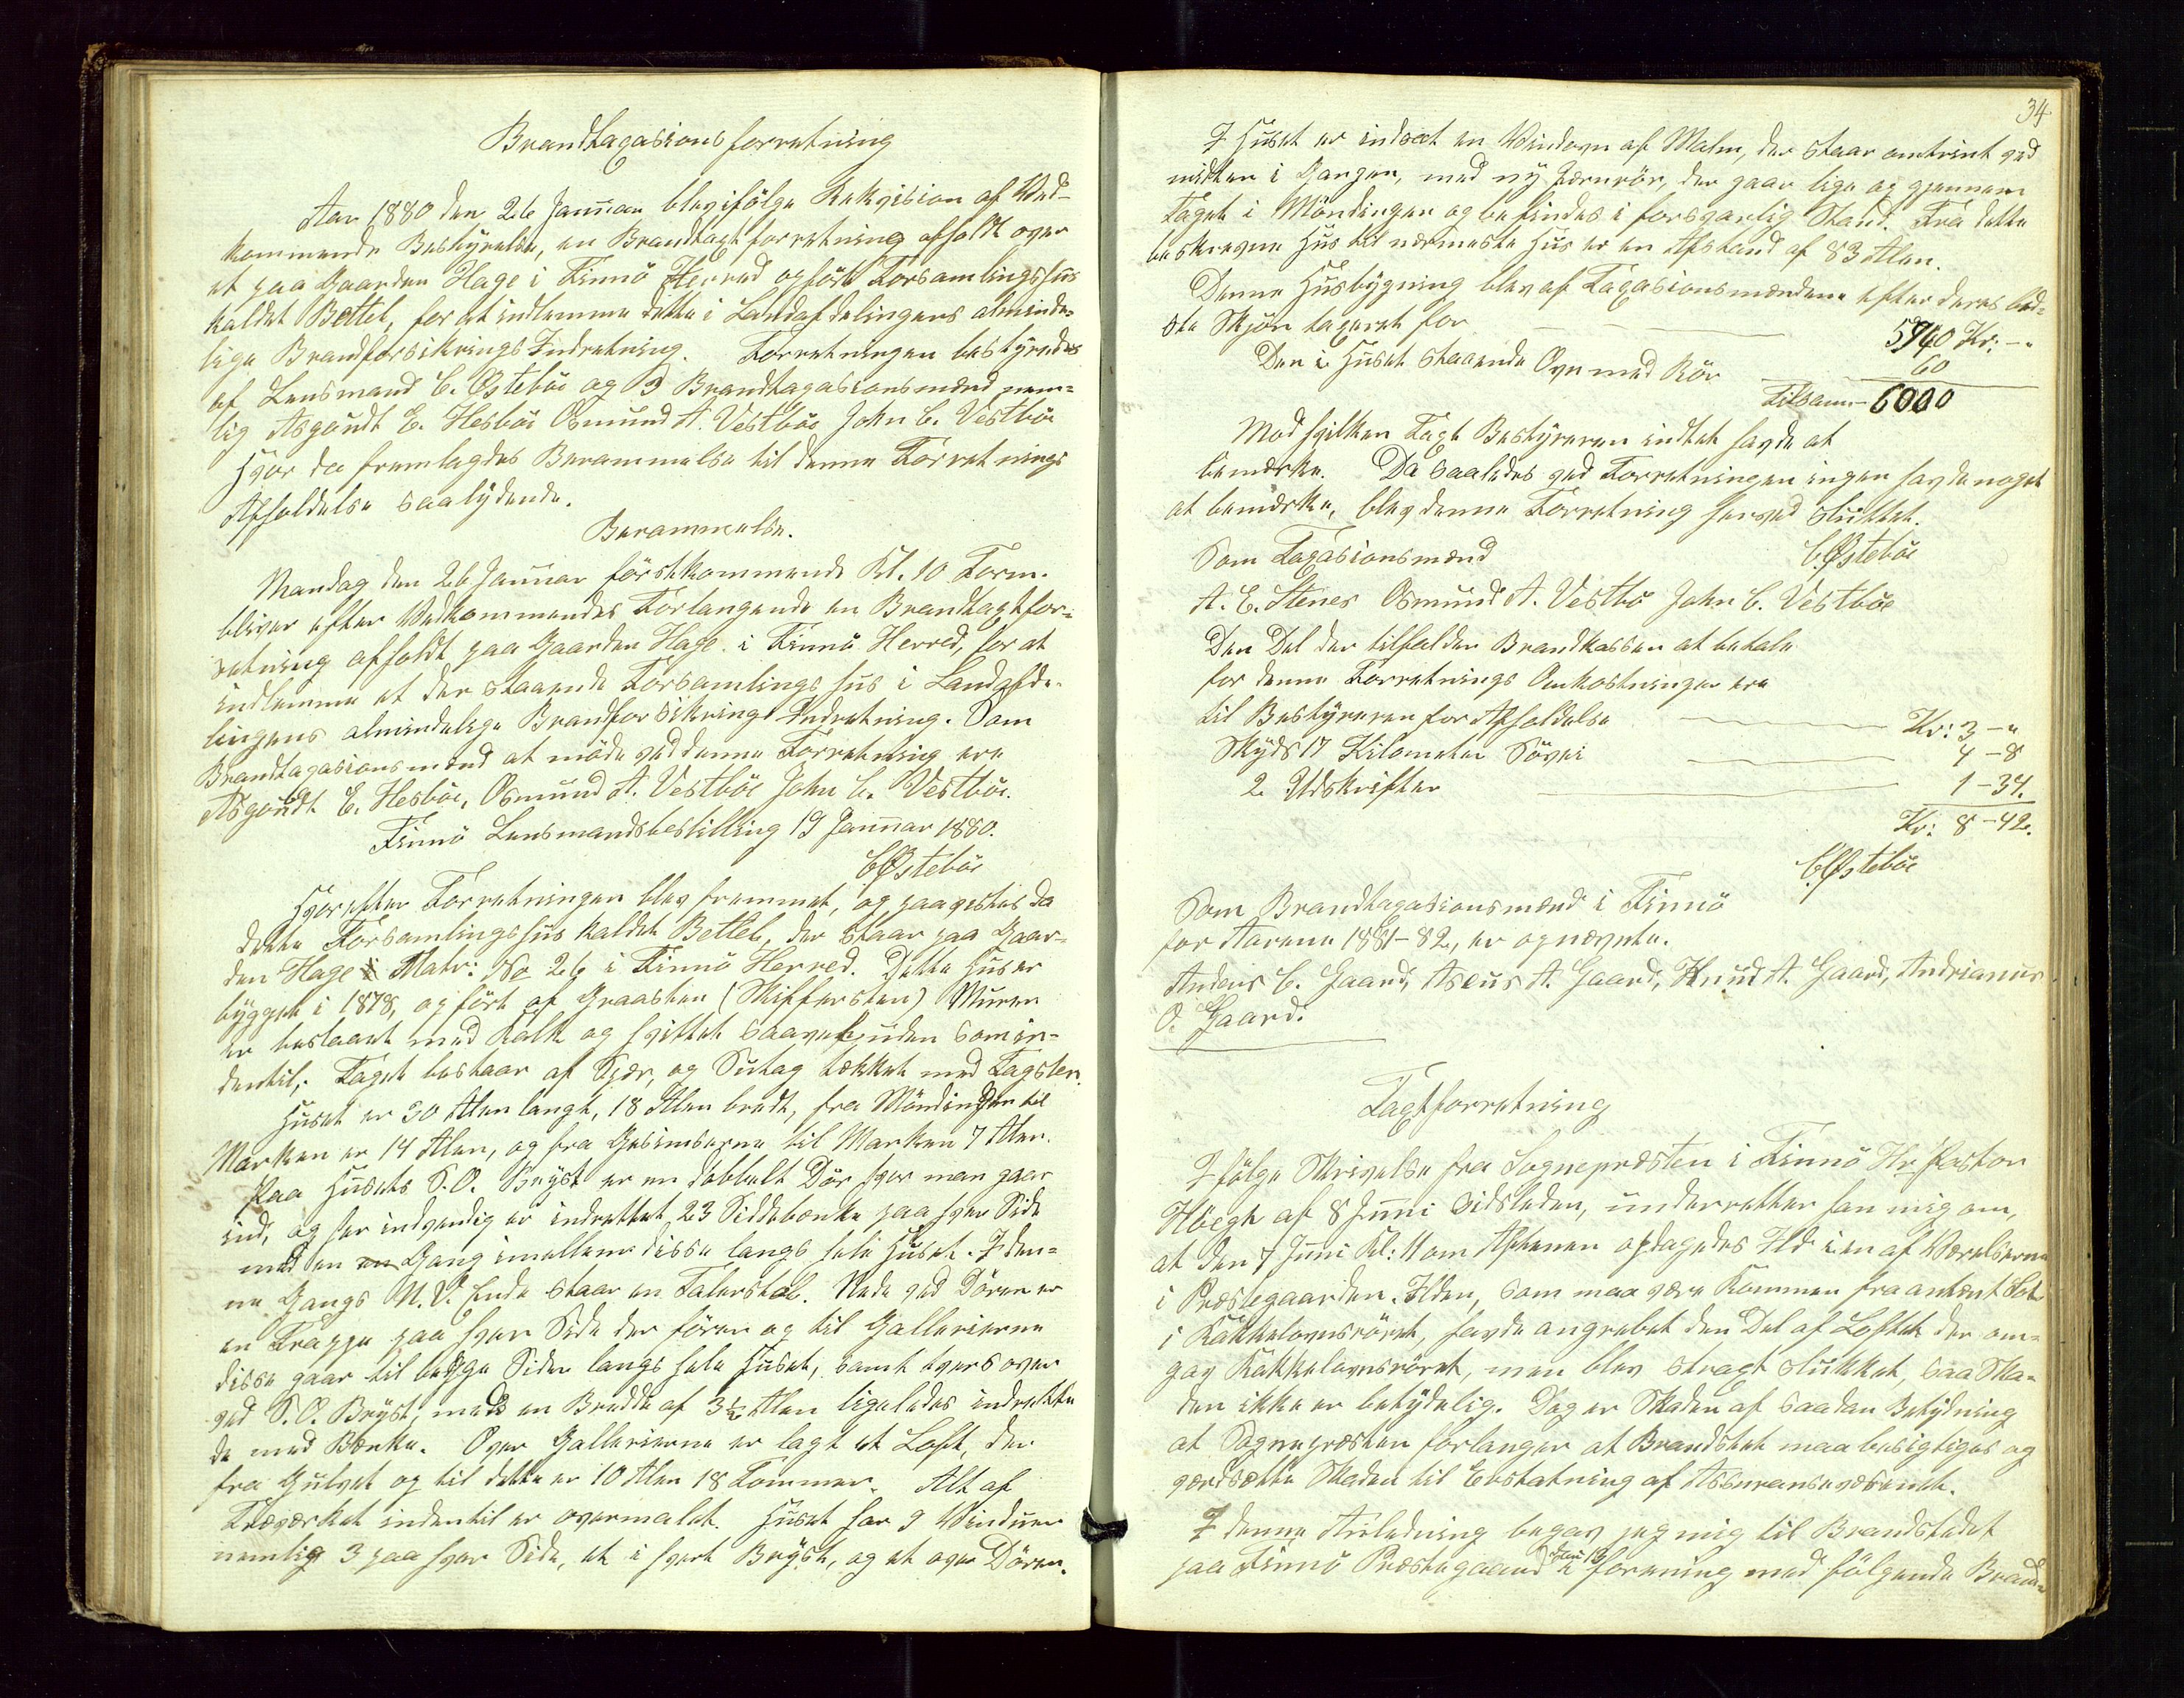 Brandtaxasionsforretning
Aar 1880 den 26 Januar blev ifölge Rekvision af Ved-
kommende Bestyrelse, en Brandtaxtforretning afholdt over
et paa Gaarden Hage i Finnö Herred opfört Forsamlingshus
kaldet Bettel, for at indlemme dette i Landafdelingens alminde-
lige Brandforsikrings Indretning. Forretningen bestyredes
af Lensmand C. Østeböe og 3 Brandtaxasionsmænd nem-
lig Asgoudt E. Hesböe Osmund A. Vestböe John C. Vestböe
Hvor da fremlagdes Berammelse til denne Forretnings
Afholdelse saalydende.
Berammelse.
Mandag den 26 Januar förstkommende Kl. 10 Form.
bliver efter Vedkommendes Forlangende en Brandtaxtfor-
retning afholdt paa Gaarden Hage i Finnö Herred, for at
indlemme et der staaende Forsamlings hus i Landafde-
lingens almindelige Brandforsikrings Indretning. Som
Brandtaxasionsmænd at möde ved denne Forretning ere
Asgoudt E. Hesböe, Osmund A. Vestböe John C. Vestböe.
Finnö Lensmandsbestilling 19 Januar 1880.
C Østeböe
Hvorefter Forretningen blev fremmet, og paavistes da
dette Forsamlingshus kaldet Bettel, der staar paa Gaar-
den Hage Matr: No 26 i Finnö Herred. Dette Hus er
bygget i 1878, opfört af Graasten (Skiffersten) Muren
er beslaaet med Kalk og hvittet saavel uden som in-
dentil. Taget bestaar af Spær, og Sutag tækket med Tagsten.
Huset er 30 Alen langt, 18 Alen bredt, fra Möndingen til
Marken er 14 Alen, og fra Gesimserne til Marken 7 Alen.
Paa Husets S.O. Bryst er en dobbelt Dör hvor man gaar
ind, og her indvendig er indrettet 23 Siddebænke paa hver Side
med en en Gang imellem disse langs hele Huset. I den-
ne Gangs N.V. Ende staar en Talerstol. Nede ved Dören er
en Trappe paa hver Side der förer op til Gallerierne
disse gaar til begge Sider langs hele Huset, samt tvers over
ved S.O. Bryst, med en Bredde af 3½ Alen ligeledes indrette
de med Bænke. Over Gallerierne er lagt et Loft, der
fra Gulvet op til dette er 10 Alen 18 Tommer. Alt af
Træværket indentil er overmalet. Huset har 9 Vinduer
nemlig 3 paa hver Side, et i hvert Bryst, og et over Dören.
34
I Huset er indsat en Vindovn af Malm, der staar omtrent ved
midten i Gangen, med ny Jernrör, der gaar lige op gjennem
Taget i Möndingen og befindes i forsvarlig Stand. Fra dette
beskrevne Hus til nærmeste Hus er en Afstand af 83 Alen.
Denne Husbygning blev af Taxasionsmændene efter deres bed-
ste Skjön taxeret for 5940 Kr: -"
Den i Huset staaende Ovn med Rör 60
Tilsam- 6000
Mod hvilken Taxt Bestyreren indtet havde at
bemærke. Da saaledes ved Forretningen ingen havde noget
at bemærke, blev denne Forretning herved sluttet.
Som Taxasionsmænd C. Østeböe
A. E. Stenes Osmund A. Vestbö John C. Vestböe
Den Del der tilfalder Brandkassen at betale
for denne Forretnings Omkostninger ere
til Bestyreren for Afholdelse Kr: 3 - "
Skyds 17 Kilometer Sövei 4 - 8
2 Udskrifter 1 - 34.
Kr: 8 - 42.
C. Østeböe
Som Brandtaxasionsmænd i Finnö
for Aarene 1881-82, er opnævnte.
Anders C. Gaard, Aseus A. Gaard, Knud A. Gaard, Andrianus
O. Gaard.
Taxtforretning
I fölge Skrivelse fra Sognepræsten i Finnö Hr Pastor
Höegh af 8 Juni sidstleden, underretter han mig om,
at den 7 Juni Kl: 11 om Aftenen opdagedes Ild i en af Værelserne
i Præstegaarden. Ilden, som maa være Kommen fra antent Sot
i Kakkelovnsröret, havde angrebet den Del af Loftet der om-
gav Kakkelovnsröret, men blev straxt slukket, saa Ska-
den ikke er betydelig. Dog er Skaden af saadan Betydning
at Sognepræsten forlanger at Brandstet maa besigtiges og
værdsætte Skaden til Erstatning af Assuransevæsenet.
I denne Anledning begav jeg mig til Brandstedet
paa Finnö Præstegaard i forening med fölgende Brand-